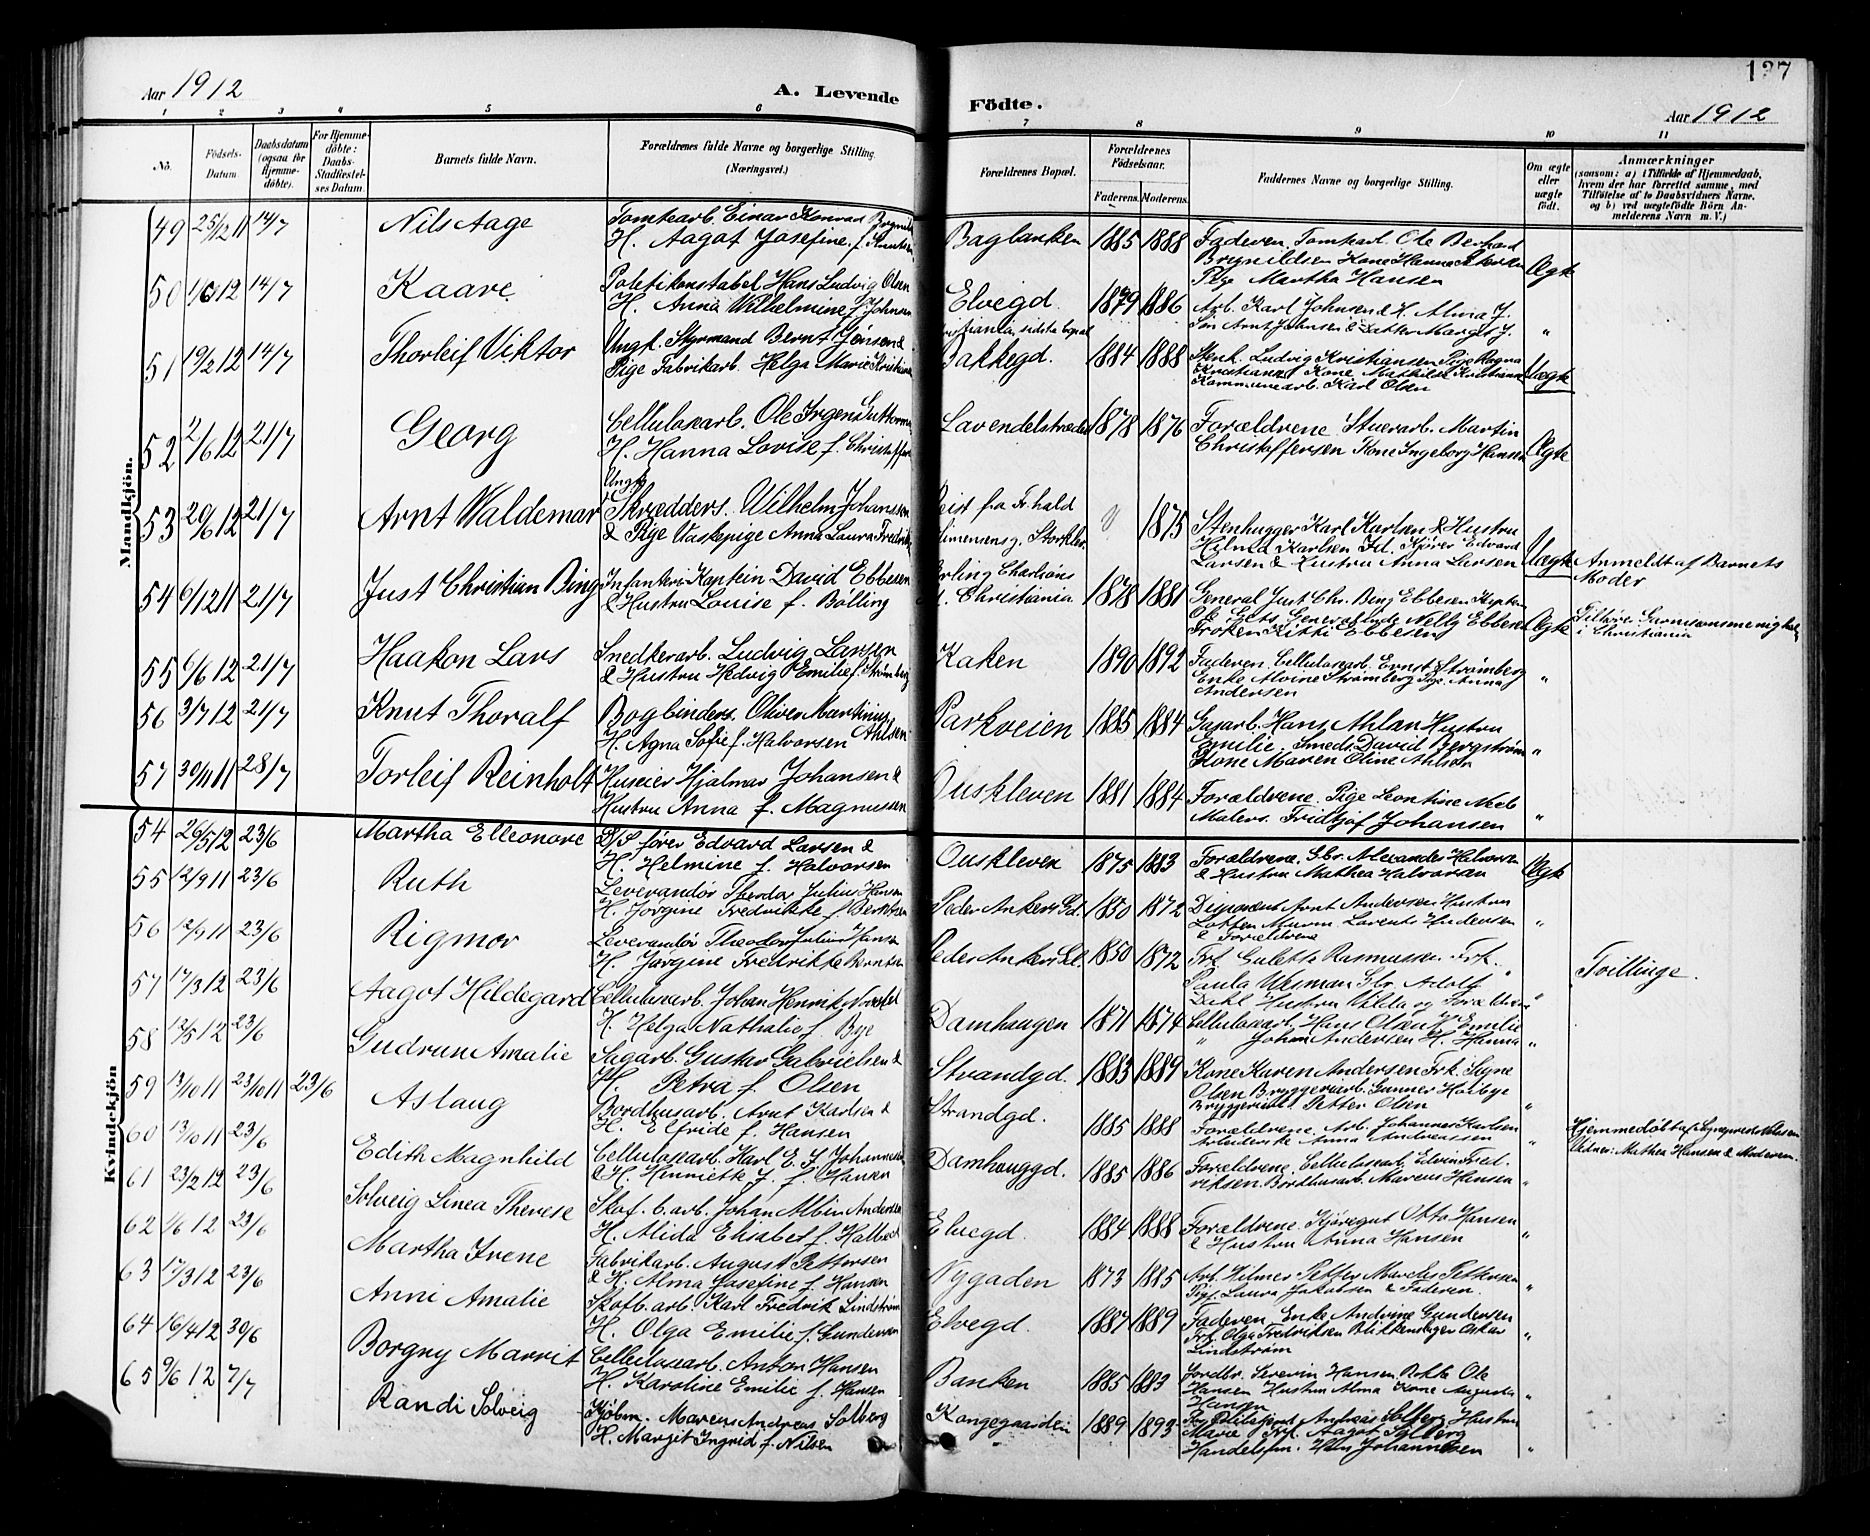 137
Aar 1912
A. Levende Födte.
Aar 1912
1 2 3 4 5 6 7 8 9 10 11
No. Födsels-Datum Daabsdatum (ogsaa for Hjemmedöbte). For Hjemmedöbte: Daabs-Stadfæstelses Datum. Barnets fulde Navn. Forældrenes fulde Navne og borgerlige Stilling. (Næringsvei.)
Forældrenes Bopæl. Forældrenes Födselsaar. Faderens. Moderens. Faddernes Navne og borgerlige Stilling. Om ægte eller uægte födt. Anmærkninger (saasom: a) i Tilfælde af Hjemmedaab, hvem der har forrettet samme, med Tilföielse af to Daabsvidners Navne, og b) ved uægtefödte Börn Anmelderens Navn m. V.)
Mandkjön.
49 25/12 11 14/7 Nils Aage Tomtearb. Einar Konrad
H. Aagot Josefine f. Knutsen Baglanken 1885 1888 Faderen. Tomtearb. Ole
Brynildsen Kone Hanna
Pige Martha Hansen Ægte
50 12 14/7 Kaare Politikonstabel Hans Ludvig Olsen
H. Anna Wilhelmine f. Johnsen Elvegd. 1879 1886 Arb. Karl Johnsen & H. Alma J.
Søn Arnt Johnsen & Datter Margit J. "
51 19/2 12 14/7 Thorleif Viktor Ungk. Styrmand Bernt Jensen &
Pige Fabrikarb. Helga Marie sidste bopæl
Bakkegd. 1884 1888 Stenh. Ludvig Kristiansen Pige Ragna
Kristiansen Kone Mathilde
Kommunearb. Karl Olsen Uægte
52 2/6 12 21/7 Georg Cellulosearb. Ole Jrgen
H. Hanna Lovise f. Lavendelstrædet 1878 1876 Forældrene Stuerarb. Martin
Christoffersen Kone Ingeborg Hansen Ægte
53 20/6 12 21/7 Arnt Waldemar Ungk.
Skrædders. Wilhelm Johanssen
& Pige Vaskepige Anna Laura reist fra Fr.hald
1875 Stenhugger Karl Karlsen & Hustru
Hilma Karlsen Fd. Kjører Edvard
Larsen & Hustru Anna Larsen Uægte Anmeldt af Barnets
Moder
54 6/12 11 21/7 Just Christian Bing Infanteri Kaptein David Ebbesen
& Hustru Louise f. Bölling Christiania 1878 1881 General Just Chr. Bing Ebbesen
Nelly Ebbesen
Frøken Kitti Ebbesen Ægte Tilhører Garnisonsmenighed
i Christiania
55 6/6 12 21/7 Haakon Lars Snedkerarb. Ludvig Larsen
& Hustru Hedvig Emilie f. Strömberg Kaken 1890 1892 Faderen. Cellulosearb. Ernst Strömberg
Enke Alvine Strømberg Pige Anna
Andersen "
56 3/7 12 21/7 Knut Thoralf Bogbinders. Oliver Martinius Ahlsen
H. Agna Sofie f. Halvorsen Parkveien 1885 1884 Gasarb. Hans Ahlsen Hustru
Emilie. Smeds. David Bergström
Kone Maren Oline Ahlsen "
57 30/11 11 28/7 Torleif Reinholt Huseier Hjalmar Johansen &
Hustru Anna f. Magnussen Ouskleven 1881 1884 Forældrene. Pige Leontine
Malers. Fridtjof Johansen "
Kvindekjön
54 26/5 12 23/6 Martha Elleonore D/S fører Edvard Larsen &
H. Helmine f. Halvorsen Ouskleven 1875 1883 Forældrene. Gbr. Alexander Halvorsen
& Hustru Mathea Halvorsen Ægte
55 12/9 11 23/6 Ruth Leverandör Theodor Julius Hansen
H. Jörgine Fredrikke f. Berntsen Peder Ankers Gd. 1850 1872 Disponent Arnt Andersen Hustru
& Forældrene "
56 12/9 11 23/6 Rigmor Leverandör Theodor Julius Hansen
H. Jörgine Fredrikke Berntsen Peder Ankers 1850 1872 Frk. Rasmussen Frk.
Paula Adolf
Dahl Hustru Hilda " Tvillinge.
57 17/3 12 23/6 Aagot Hildegard Cellulosearb. Johan Henrik
H. Helga Nathalie f. Bye Damhaugen 1871 1874 Cellulosearb. Hans Olsen H. Emilie
" Johan Andersen H. Hanna "
58 12/5 12 23/6 Gudrun Amalie Sagarb. Gustav Gabrielsen &
H. Petra f. Olsen Strandgd. 1883 1889 Kone Karen Andersen Frk. Signe
Olsen Bryggeriarb. Gunner Holbye
Petter Olsen "
59 13/10 11 23/10 11 23/6 Aslaug Bordhusarb. Arnt Karlsen &
H. Elfride f. Hansen Strandgd. 1885 1888 Forældrene. Arb. Johannes Karlsen
Arbeiderske Anna Andreassen " Hjemmedöbt af
Vidner: Mathea Hansen & Moderen.
60 13/10 11 23/6 Edith Magnhild Cellulosearb. Karl E. J. Johannesen
& H. Henriette J. f. Hansen Damhauggd. 1885 1886 Forældrene. Cellulosearb. Edvin Fredriksen
Bordhusarb. Marcus Hansen "
61 23/2 12 23/6 Solveig Linea Therese Skof.b.arb. Johan Albin Andersen
H. Alida Elisabet f. Elvegd. 1884 1888 Forældrene. Otto Hansen
& Hustru Anna Hansen "
62 12 23/6 Martha Irene Fabrikarb. August Pettersen
& H. Alma Josefine f. Hansen Nygaden 1873 1885 Arb. Hilmer Petter Pettersen
Pige Laura Jakobsen & Faderen. "
63 17/3 12 23/6 Anni Amalie Skofb.arb. Karl Fredrik Lindström
H. Olga Emilie f. Gundersen Elvegd. 1887 1889 Faderen. Enke Andrine Gundersen
Frk. Olga Fredriksen Blikkenslager Oskar
Lindström "
64 16/4 12 30/6 Borgny Marrit Cellulosearb. Anton Hansen
H. Karoline Emilie f. Hansen Banken 1885 1883 Jordbr. Severin Hansen. Ole
Hansen Hustru Alma Kone Augusta
Hansen "
65 9/6 12 7/7 Randi Solveig Kjöbm. Marcus Andreas Solberg
H. Margit Ingrid f. Nilsen Kongegaarden 1889 1893 Andreas Solberg Hustru
Marie Frk. Aagot Solberg
Handelsfm. Johannesen "